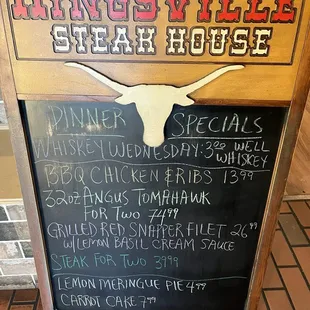 KINGSVILLE
STEAK HOUSE
DINNER SPECIALS
WHISKEY WEDNESDAY: 3.20 WELL
WHISKEY
BBQ CHICKEN & RIBS 13.99
32oz ANGUS TOMAHAWK
FOR TWO 74.99
GRILLED RED SNAPPER FILET 26.99
W/LEMON BASIL CREAM SAUCE
STEAK FOR TWO 39.99
LEMON MERINGUE PIE 4.99
CARROT CAKE 7.99